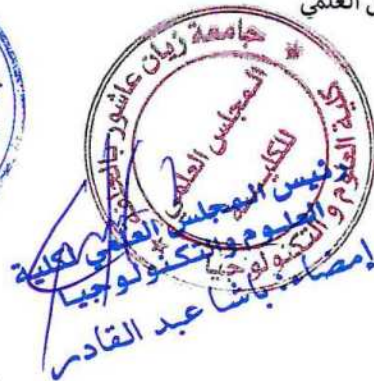 العلمي
جامعة زيان عاشور بالجلفة
كلية العلوم و التكنولوجيا
المجلس العلمي
للكلية
رئيس المجلس العلمي لكلية
العلوم والتكنولوجيا
إمضاء: باشا عبد القادر